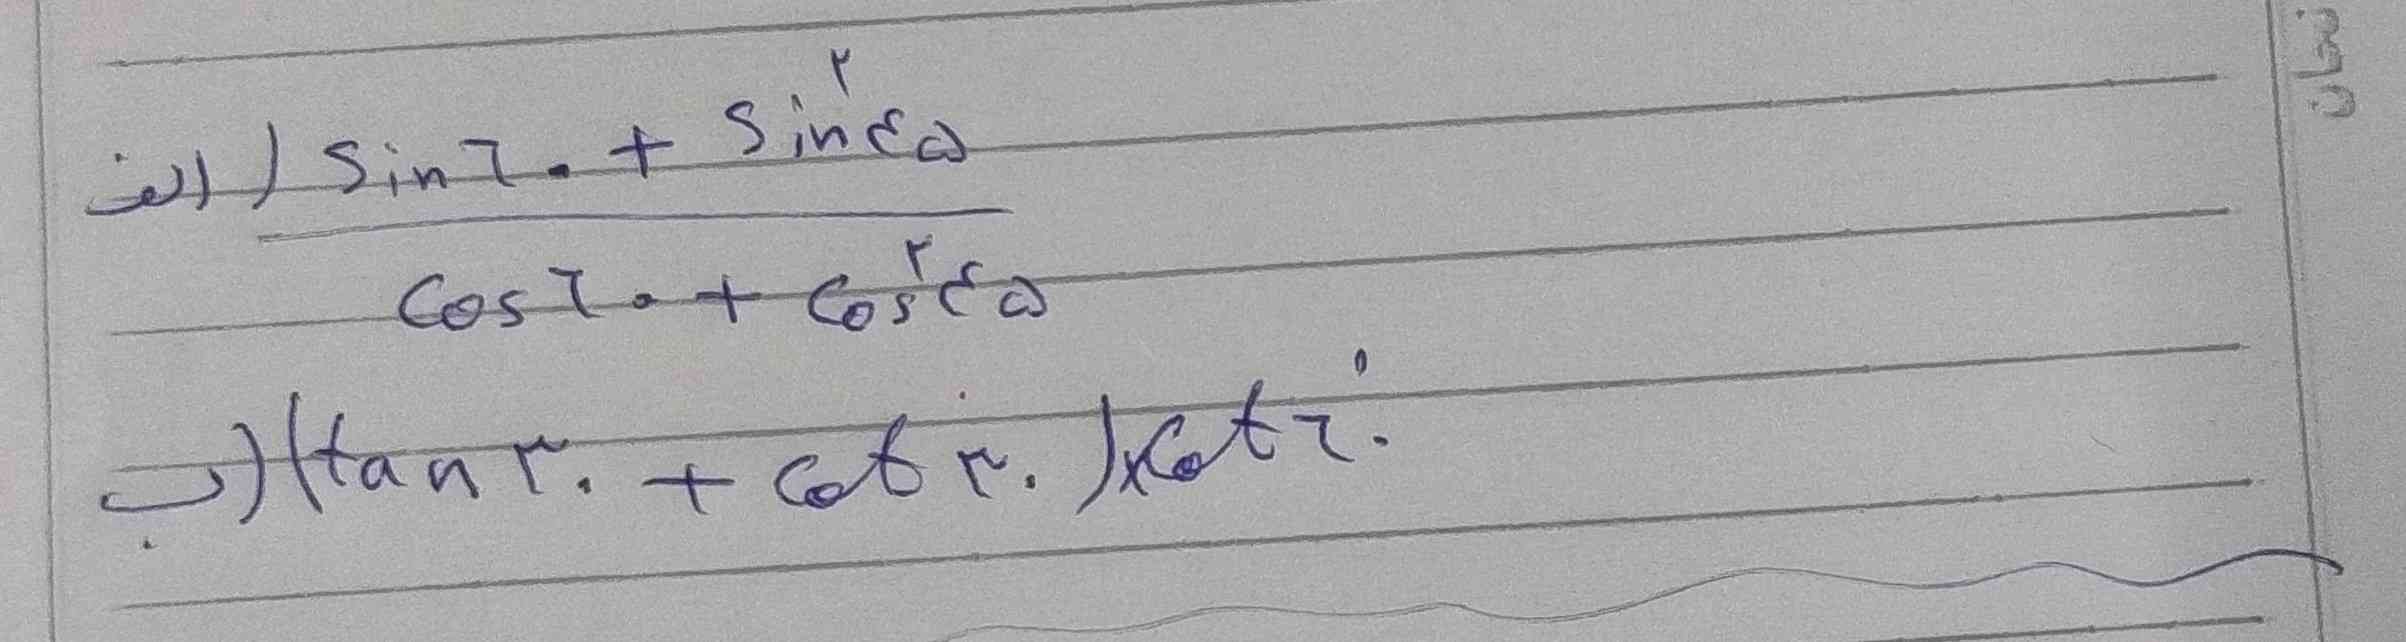 الف) sin۶۰ + sin²۴۵
cos۶۰ + cos²۴۵
ب) (tan ۳۰ + cot ۳۰) × cot ۶۰